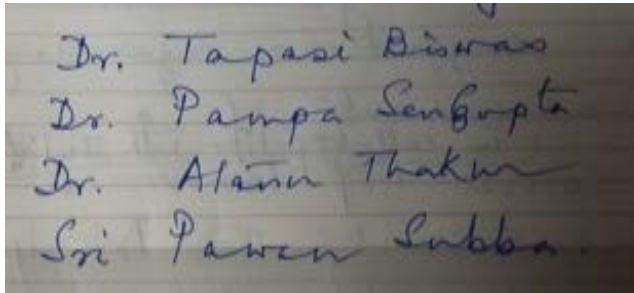 Dr. Tapasi Biswas
Dr. Pampa Sengupta
Dr. Thakur
Sri Pawan Subba.